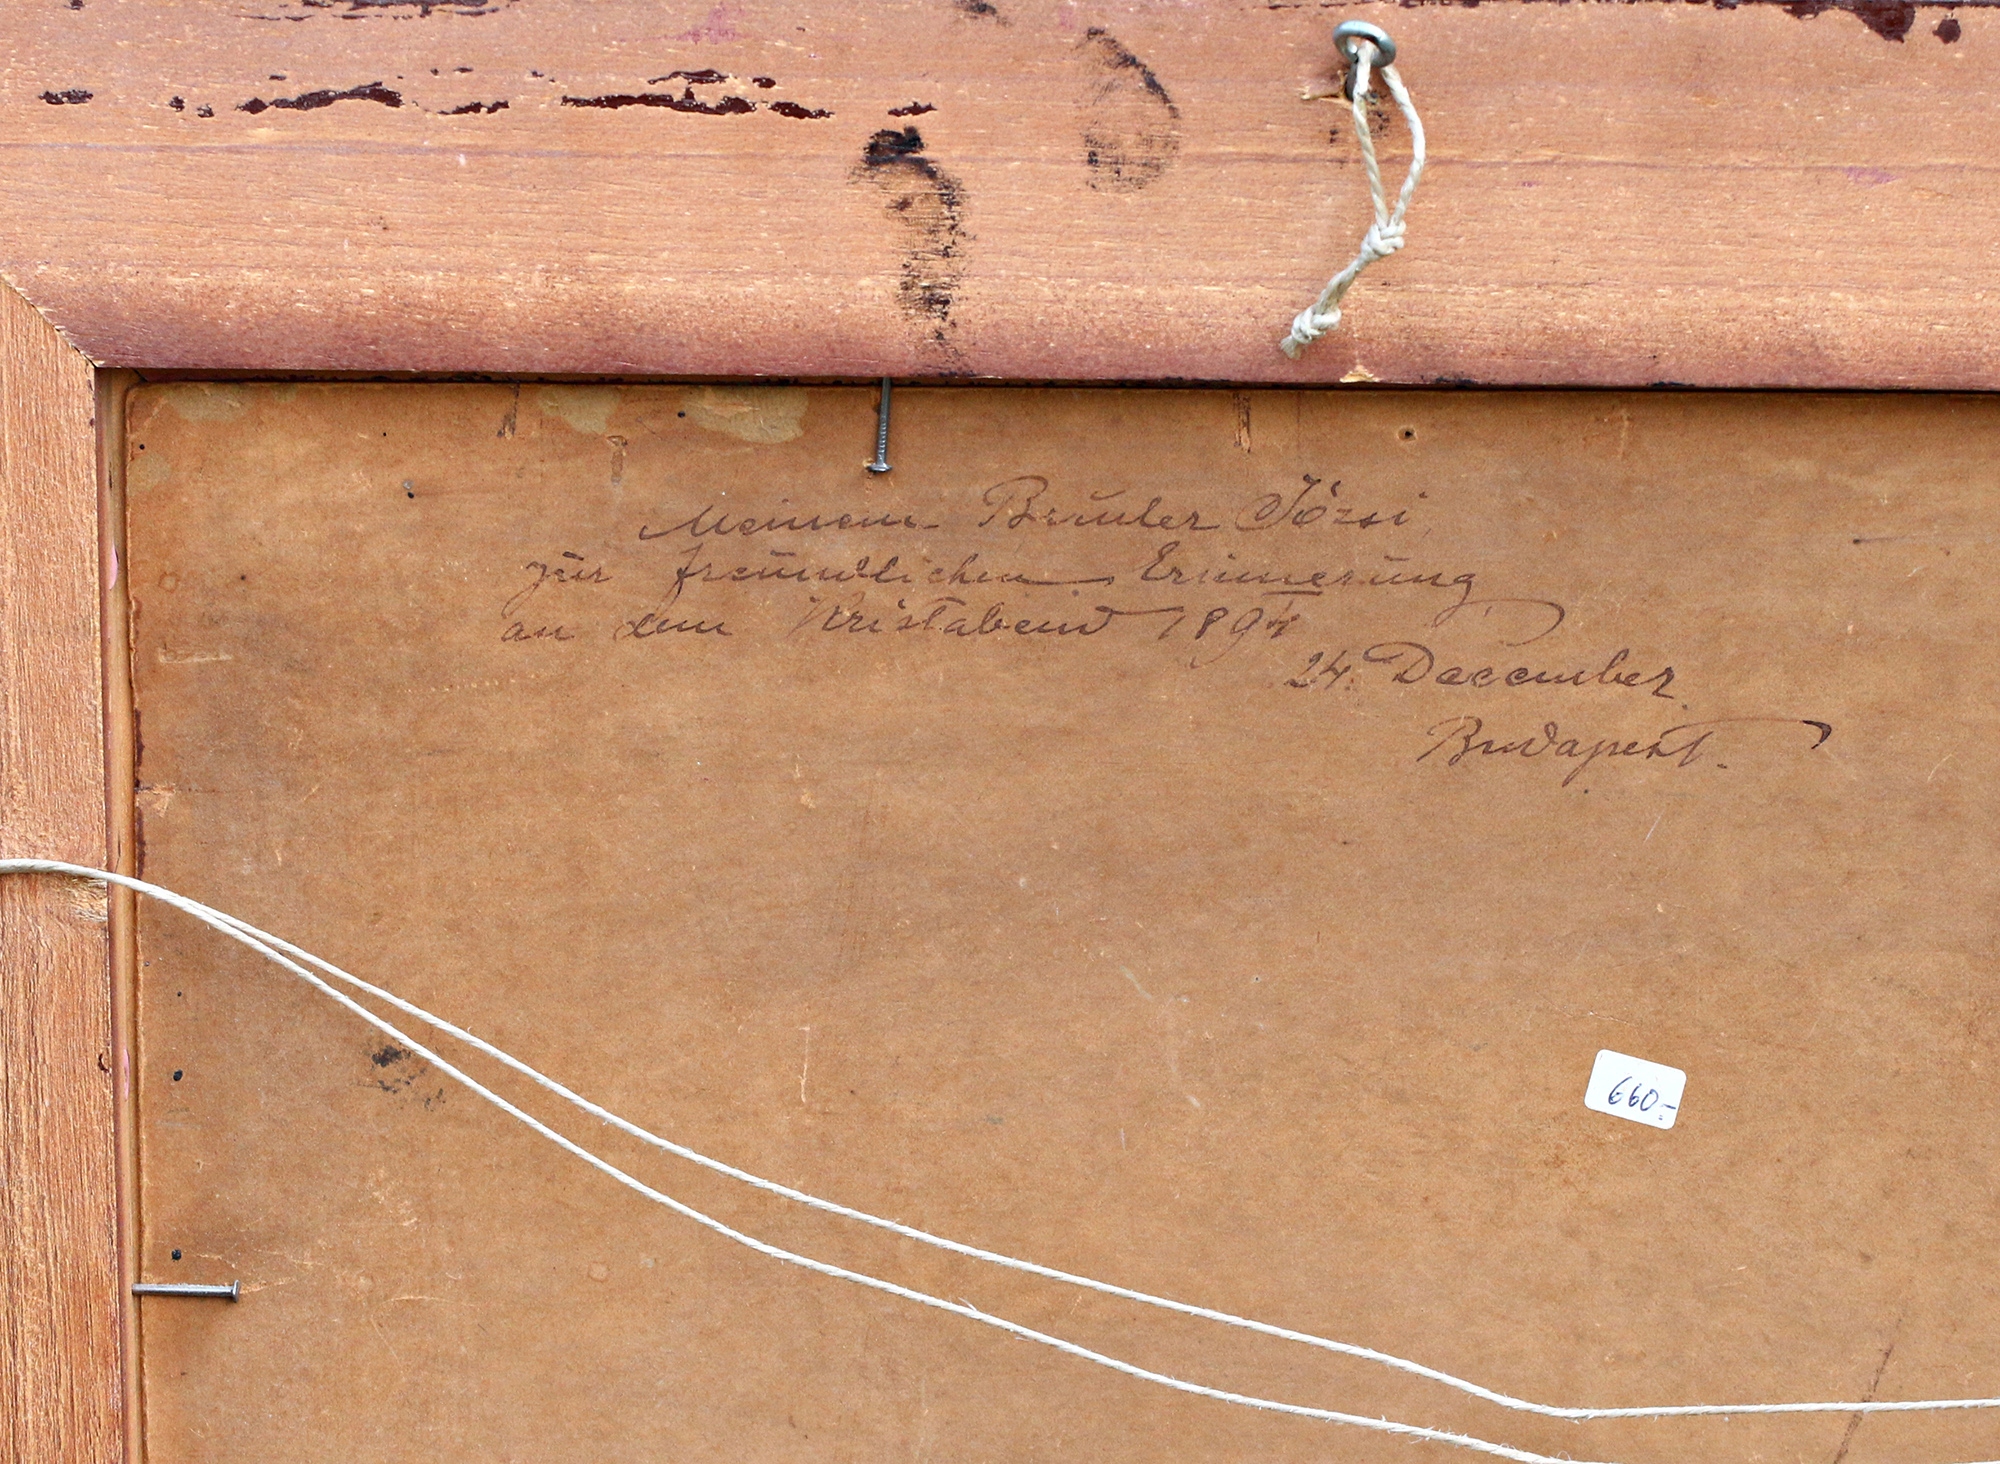 Meinem Bruder Józsi
zur freundlichen Erinnerung
an dem Kristabend 189
24. December
Budapest.
660.-